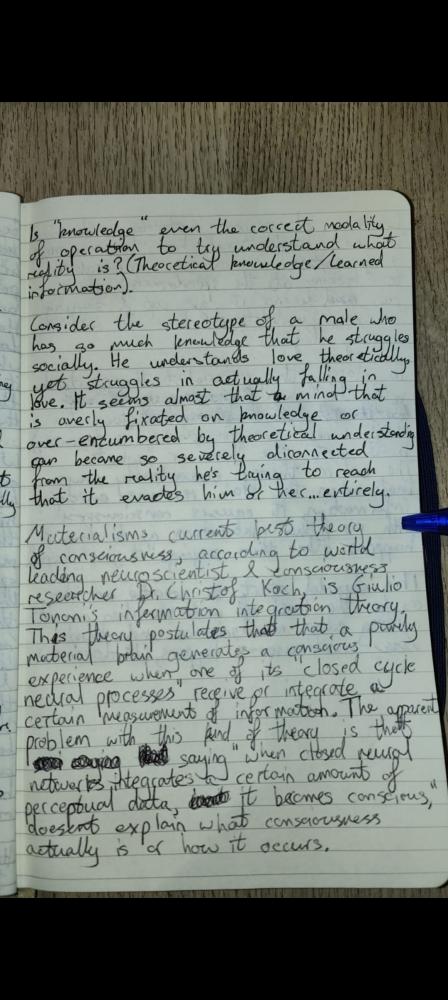 Is "knowledge" even the correct modality
of operation to try understand what
reality is? (Theoretical knowledge/Learned
information).
Consider the stereotype of a male who
has so much knowledge that he struggles
socially. He understands love theoretically,
yet struggles in actually falling in
love. It seems almost that a mind that
is overly fixated on knowledge or
over-encumbered by theoretical understanding
can become so severely diconnected
from the reality he's trying to reach
that it evades him or her...entirely.
Materialisms current best theory
of consciousness, according to world
leading neuroscientist & consciousness
researcher Dr. Christof Koch, is Giulio
Tononi's information integration theory.
This theory postulates that that a purely
material brain generates a conscious
experience when one of its "closed cycle
neural processes" receive or integrate a
certain measurement of information. The apparent
problem with this kind of theory is that
saying "when closed neural
networks integrates a certain amount of
perceptual data, it becomes conscious,"
doesent explain what consciousness
actually is or how it occurs.